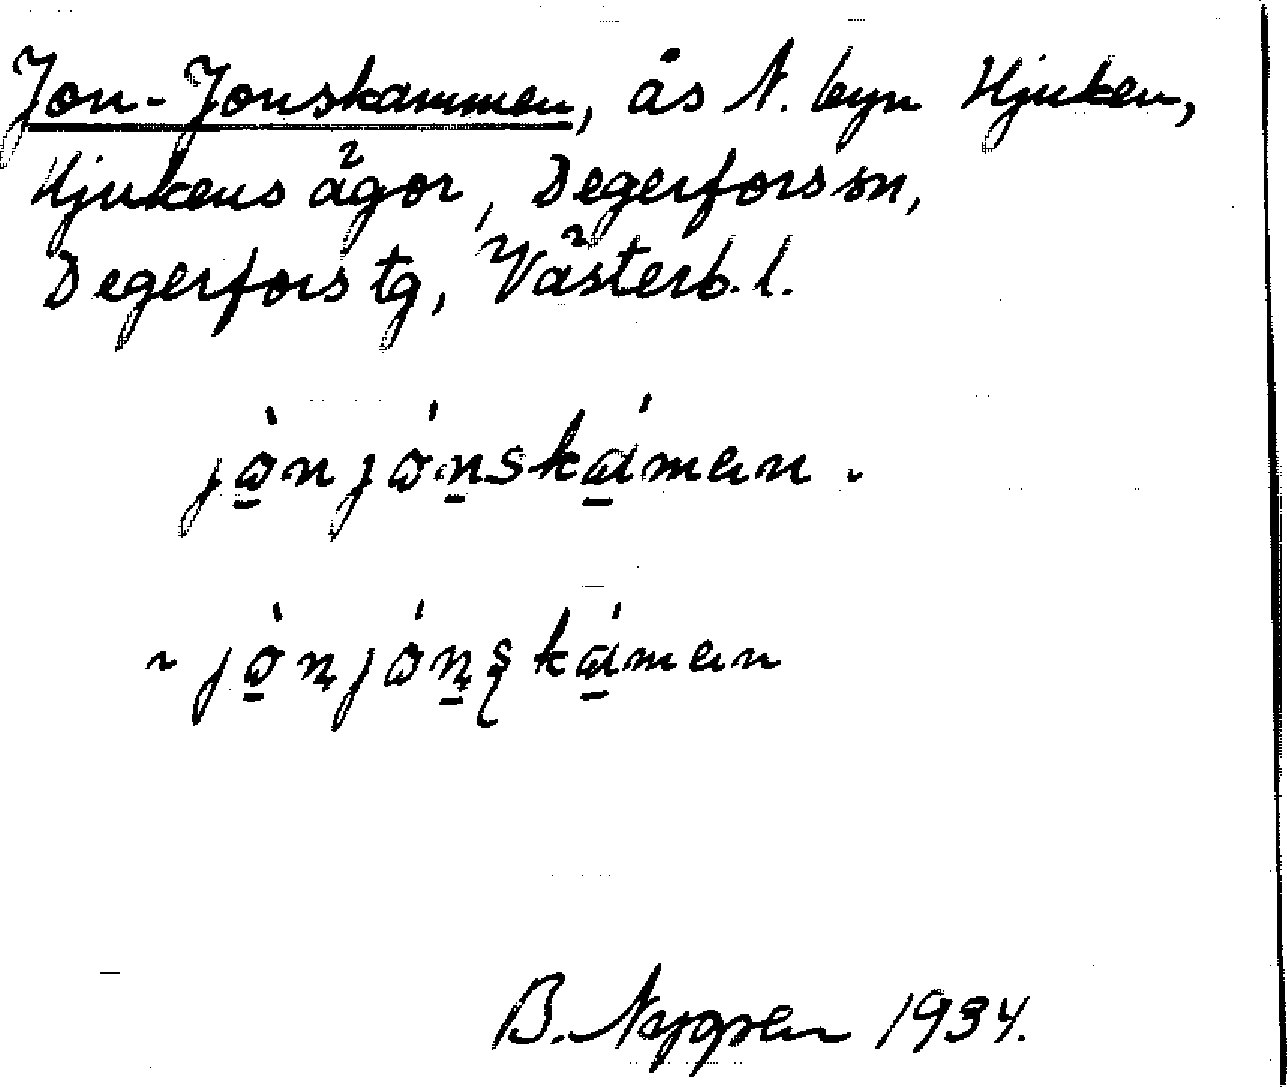 Jon-Jonskammen, ås N. byn Hjuken,
Hjukens ägor, Degerfors sn,
Degerfors tg, Västerb. l.
jȯ̱n jóṉská̱man.
~ jȯ̱ɳ jóɳ̱ʂká̱man
B. Nygren 1934.